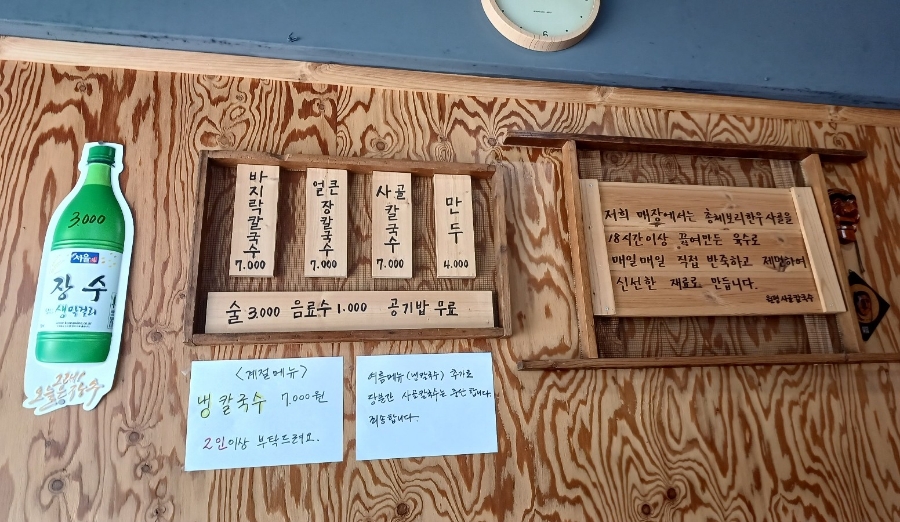 3.000
서울
장수
생막걸리
오늘은
바지락칼국수
7.000
얼큰장칼국수
7.000
사골칼국수
7.000
만두
4.000
술 3.000 음료수 1.000 공기밥 무료
<계절메뉴>
냉칼국수 7.000원
2인이상 부탁드려요.
여름메뉴(냉칼국수) 추가로
당분간 사골칼국수는 중단합니다
죄송합니다.
저희 매장에서는 횡성보리한우사골을
18시간이상 끓여만든 육수로
매일매일 직접 반죽하고 제면하여
신선한 재료로 만듭니다.
사골칼국수